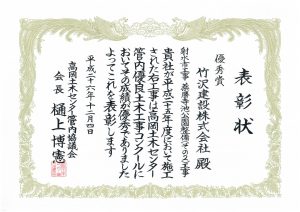 表彰状
優秀賞
竹沢建設株式会社 殿
射水市工事 薬勝寺池公園整備(その2)工事
貴社が平成二十五年度において施工
された右工事は高岡土木センター
管内優良土木工事コンクールに
おいてその成績が優秀でありました
よってこれを表彰します
平成二十六年十二月四日
高岡土木センター管内協議会
会長 樋上博憲